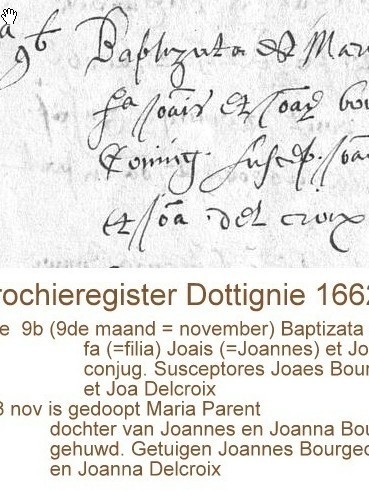 9b Baptizata est Mar
fa Joais et Joae bou
Coniug. suscep. Joa
et Joa del croix
rochieregister Dottignie 1662
e 9b (9de maand = november) Baptizata
fa (=filia) Joais (=Joannes) et Jo
conjug. Susceptores Joaes Bour
et Joa Delcroix
3 nov is gedoopt Maria Parent
dochter van Joannes en Joanna Bou
gehuwd. Getuigen Joannes Bourgeo
en Joanna Delcroix